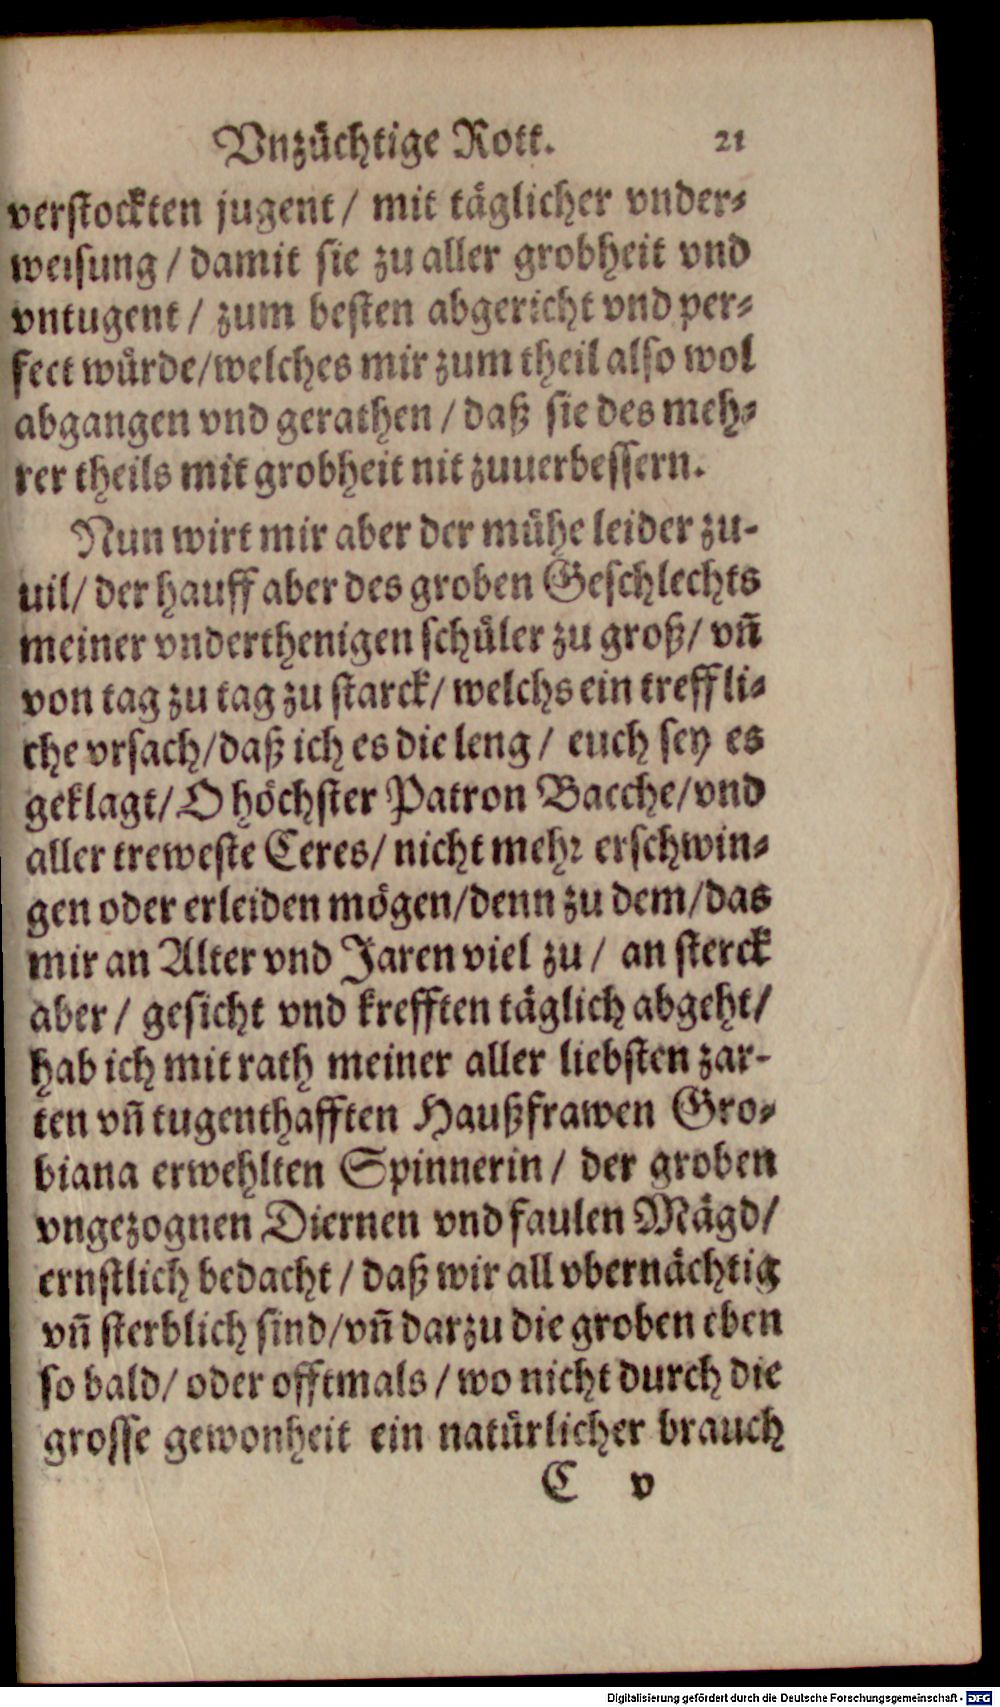 Vnzüchtige Rott. 21
verstockten jugent / mit täglicher vnder⸗
weisung / damit sie zu aller grobheit vnd
vntugent / zum besten abgericht vnd per⸗
fect würde/welches mir zum theil also wol
abgangen vnd gerathen / daß sie des meh⸗
rer theils mit grobheit nit zuuerbessern.
Nun wirt mir aber der mühe leider zu-
uil/ der hauff aber des groben Geschlechts
meiner vnderthenigen schüler zu groß/ vñ
von tag zu tag zu starck/ welchs ein treffli⸗
che vrsach/daß ich es die leng / euch sey es
geklagt/O höchster Patron Bacche/vnd
aller treweste Ceres/ nicht mehr erschwin⸗
gen oder erleiden mögen/denn zu dem/das
mir an Alter vnd Jaren viel zu / an sterck
aber / gesicht vnd krefften täglich abgeht/
hab ich mit rath meiner aller liebsten zar-
ten vñ tugenthafften Haußfrawen Gro⸗
biana erwehlten Spinnerin / der groben
vngezognen Diernen vnd faulen Mägd/
ernstlich bedacht / daß wir all vbernächtig
vñ sterblich sind/vñ darzu die groben eben
so bald/ oder offtmals / wo nicht durch die
grosse gewonheit ein natürlicher brauch
C v
Digitalisierung gefördert durch die Deutsche Forschungsgemeinschaft - DFG